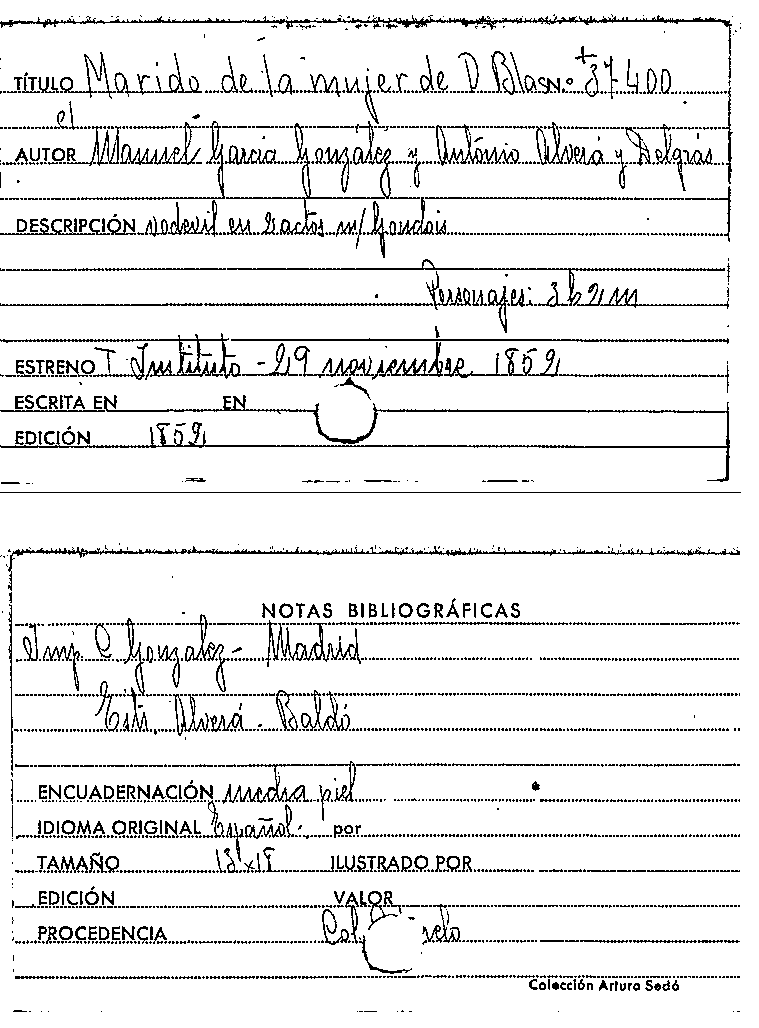 TÍTULO Marido de la mujer de D Blas N.º +37400
el
AUTOR Manuel García González y António Alverá y Delgrás
DESCRIPCIÓN vodevil en 2 actos m/ Gondois
Personajes: 3 h 2 m
ESTRENO T Instituto - 29 noviembre 1852
ESCRITA EN EN
EDICIÓN 1852
NOTAS BIBLIOGRÁFICAS
Imp C Gonzalez - Madrid
Estr. Alverá - Baldó
ENCUADERNACIÓN media piel
IDIOMA ORIGINAL Español. por
TAMAÑO ILUSTRADO POR
EDICIÓN VALOR
PROCEDENCIA Col.
Colección Arturo Sedó